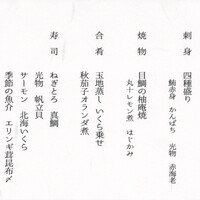 刺身　四種盛り
鮪赤身　かんぱち　光物　赤海老
焼物　目鯛の柚庵焼
丸十レモン煮　はじかみ
合肴　玉地蒸し　いくら乗せ
秋茄子オランダ煮
寿司　ねぎとろ　真鯛
光物　帆立貝
サーモン　北海いくら
季節の魚介　エリンギ茸昆布〆